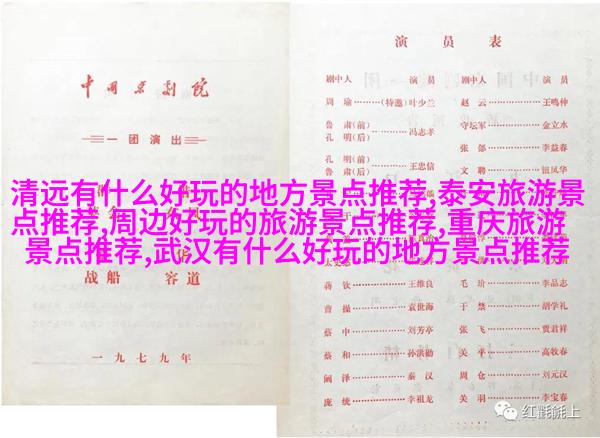 中国京剧院
一团演出
清远有什么好玩的地方景点推荐,泰安旅游景
点推荐,周边好玩的旅游景点推荐,重庆旅游
景点推荐,武汉有什么好玩的地方景点推荐
战船 容道
一九七九年
演员表
剧中人 演员 剧中人 演员
周瑜 (特邀)叶少兰 赵云 王鸣仲
鲁肃(前)
孔明(后) 冯志孝 守坛军 金立水
张郃 李益春
孔明(前)
鲁肃(后) 王忠信 文聘 钮凤华
蒋钦 王维良 毛玠 李品志
曹操 袁世海 于禁 胡学礼
蔡中 刘芳亭 张飞 贾君祥
蔡和 孙洪勋 关平 高牧春
阚泽 秦汉 周仓 刘元汉
庞统 李祖龙 关羽 李宝春
红氍毹上